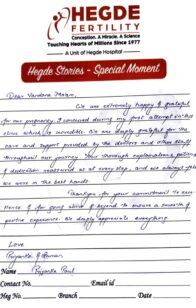 HEGDE
FERTILITY
Conception. A Miracle. A Science
Touching Hearts of Millions Since 1977
A Unit of Hegde Hospital
Hegde Stories - Special Moment
Dear Vandana Ma'am,
We are extremely happy & grateful
for our pregnancy. I conceived during my first attempt in this
clinic which is incredible. We are deeply grateful for the
care and support provided by the doctors and other staff
throughout our journey. Your thorough explanations, patience
& dedication reassured us at every step, and we always felt
we were in the best hands.
Thankyou for your commitment to excel
lence & for going above & beyond to ensure a smooth &
positive experience. We deeply appreciate everything.
Love
Priyanka &
Name Priyanka Paul
Contact No. Email id
Heg No. Branch Date